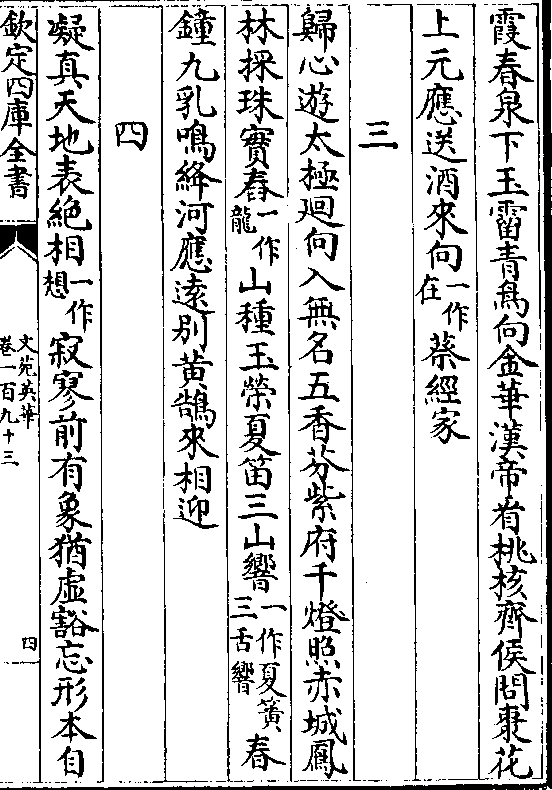 霞春泉下玉霤青鳥向金華漢帝看桃核齊侯問棗花
上元應送酒來向一作在蔡經家
三
歸心遊太極廻向入無名五香芬紫府千燈照赤城鳳
林採珠寶春一作龍山種玉榮夏笛三山響一作夏簧三舌響春
鐘九乳鳴絳河應遠别黄鵠來相迎
四
凝真天地表絶相一作想寂寥前有象猶虛豁忘形本自
欽定四庫全書
文苑英華
卷一百九十三
四